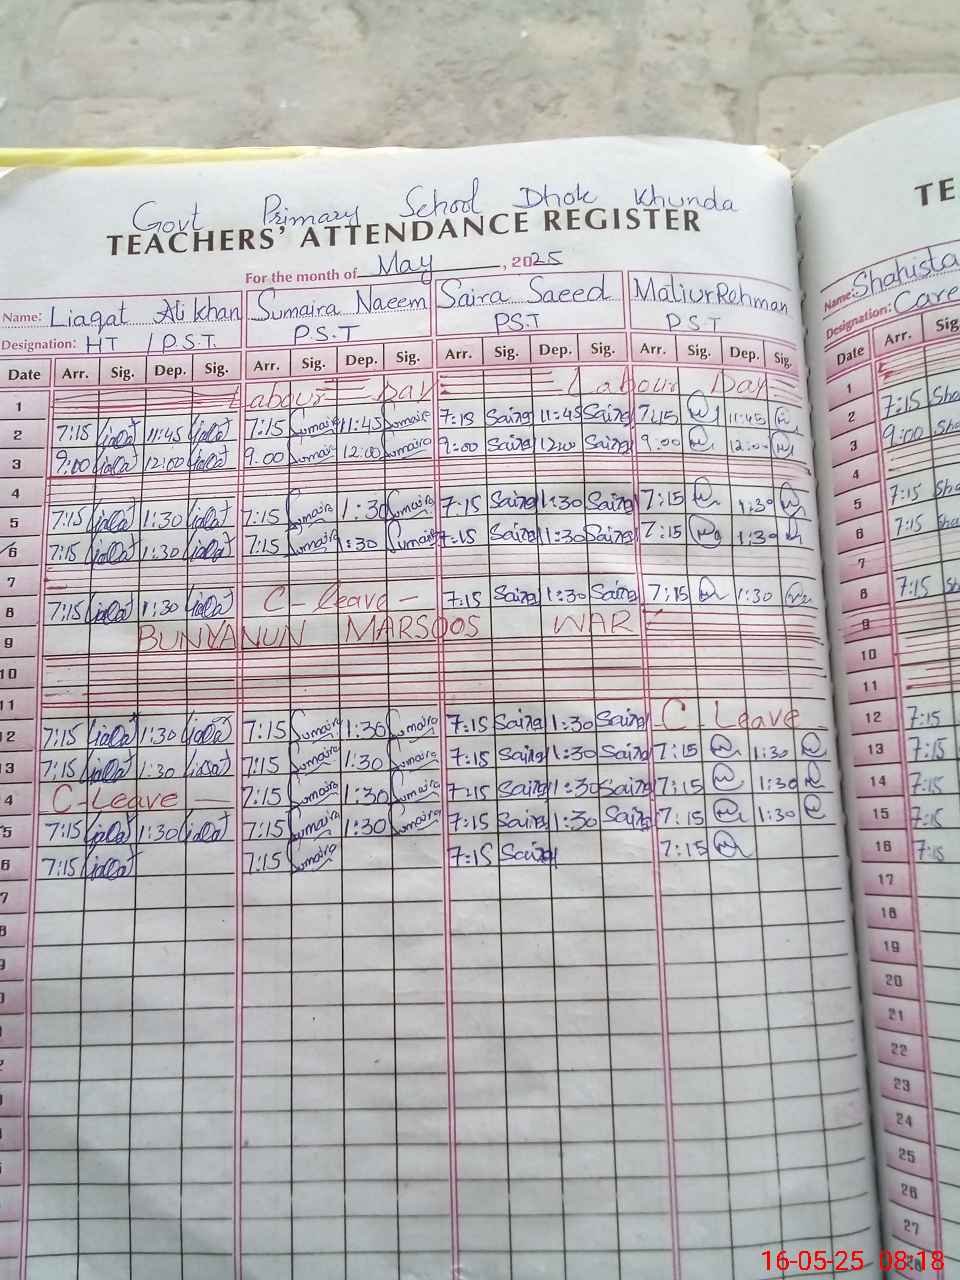 Govt Primary School Dhok Khunda
TEACHERS' ATTENDANCE REGISTER
For the month of May, 2025
Name: Liaqat Ali khan Sumaira Naeem Saira Saeed Matiur Rehman
Designation: HT / P.S.T. P.S.T PST P.S.T
Date Arr. Sig. Dep. Sig. Arr. Sig. Dep. Sig. Arr. Sig. Dep. Sig. Arr. Sig. Dep. Sig.
1 Labour Day Labour Day
2 7:15 11:45 7:15 Sumaira 11:45 Sumaira 7:15 Saira 11:45 Saira 7:15 11:45
3 9:00 12:00 9.00 Sumaira 12:00 Sumaira 9:00 Saira 12:00 Saira 9:00 12:00
4
5 7:15 1:30 7:15 Sumaira 1:30 Sumaira 7:15 Saira 1:30 Saira 7:15 1:30
6 7:15 1:30 7:15 Sumaira 1:30 Sumaira 7:15 Saira 1:30 Saira 7:15 1:30
7
8 7:15 1:30 C-leave- 7:15 Saira 1:30 Saira 7:15 1:30
9 BUNYANUN MARSOOS WAR
10
11
12 7:15 1:30 7:15 Sumaira 1:30 Sumaira 7:15 Saira 1:30 Saira C-Leave
13 7:15 1:30 7:15 Sumaira 1:30 Sumaira 7:15 Saira 1:30 Saira 7:15 1:30
4 C-Leave — 7:15 Sumaira 1:30 Sumaira 7:15 Saira 1:30 Saira 7:15 1:30
5 7:15 1:30 7:15 Sumaira 1:30 Sumaira 7:15 Saira 1:30 Saira 7:15 1:30
6 7:15 7:15 Sumaira 7:15 Saira 7:15
7
8
9
TE
Name: Shahista
Designation: Care
Date Arr. Sig.
1
2 7:15 Sha
3 9:00 Sha
4
5 7:15 Sha
6 7:15 Sha
7
8 7:15 Sh
9
10
11
12 7:15
13 7:15
14 7:15
15 7:15
16 7:15
17
18
19
20
21
22
23
24
25
26
27
16-05-25 08:18